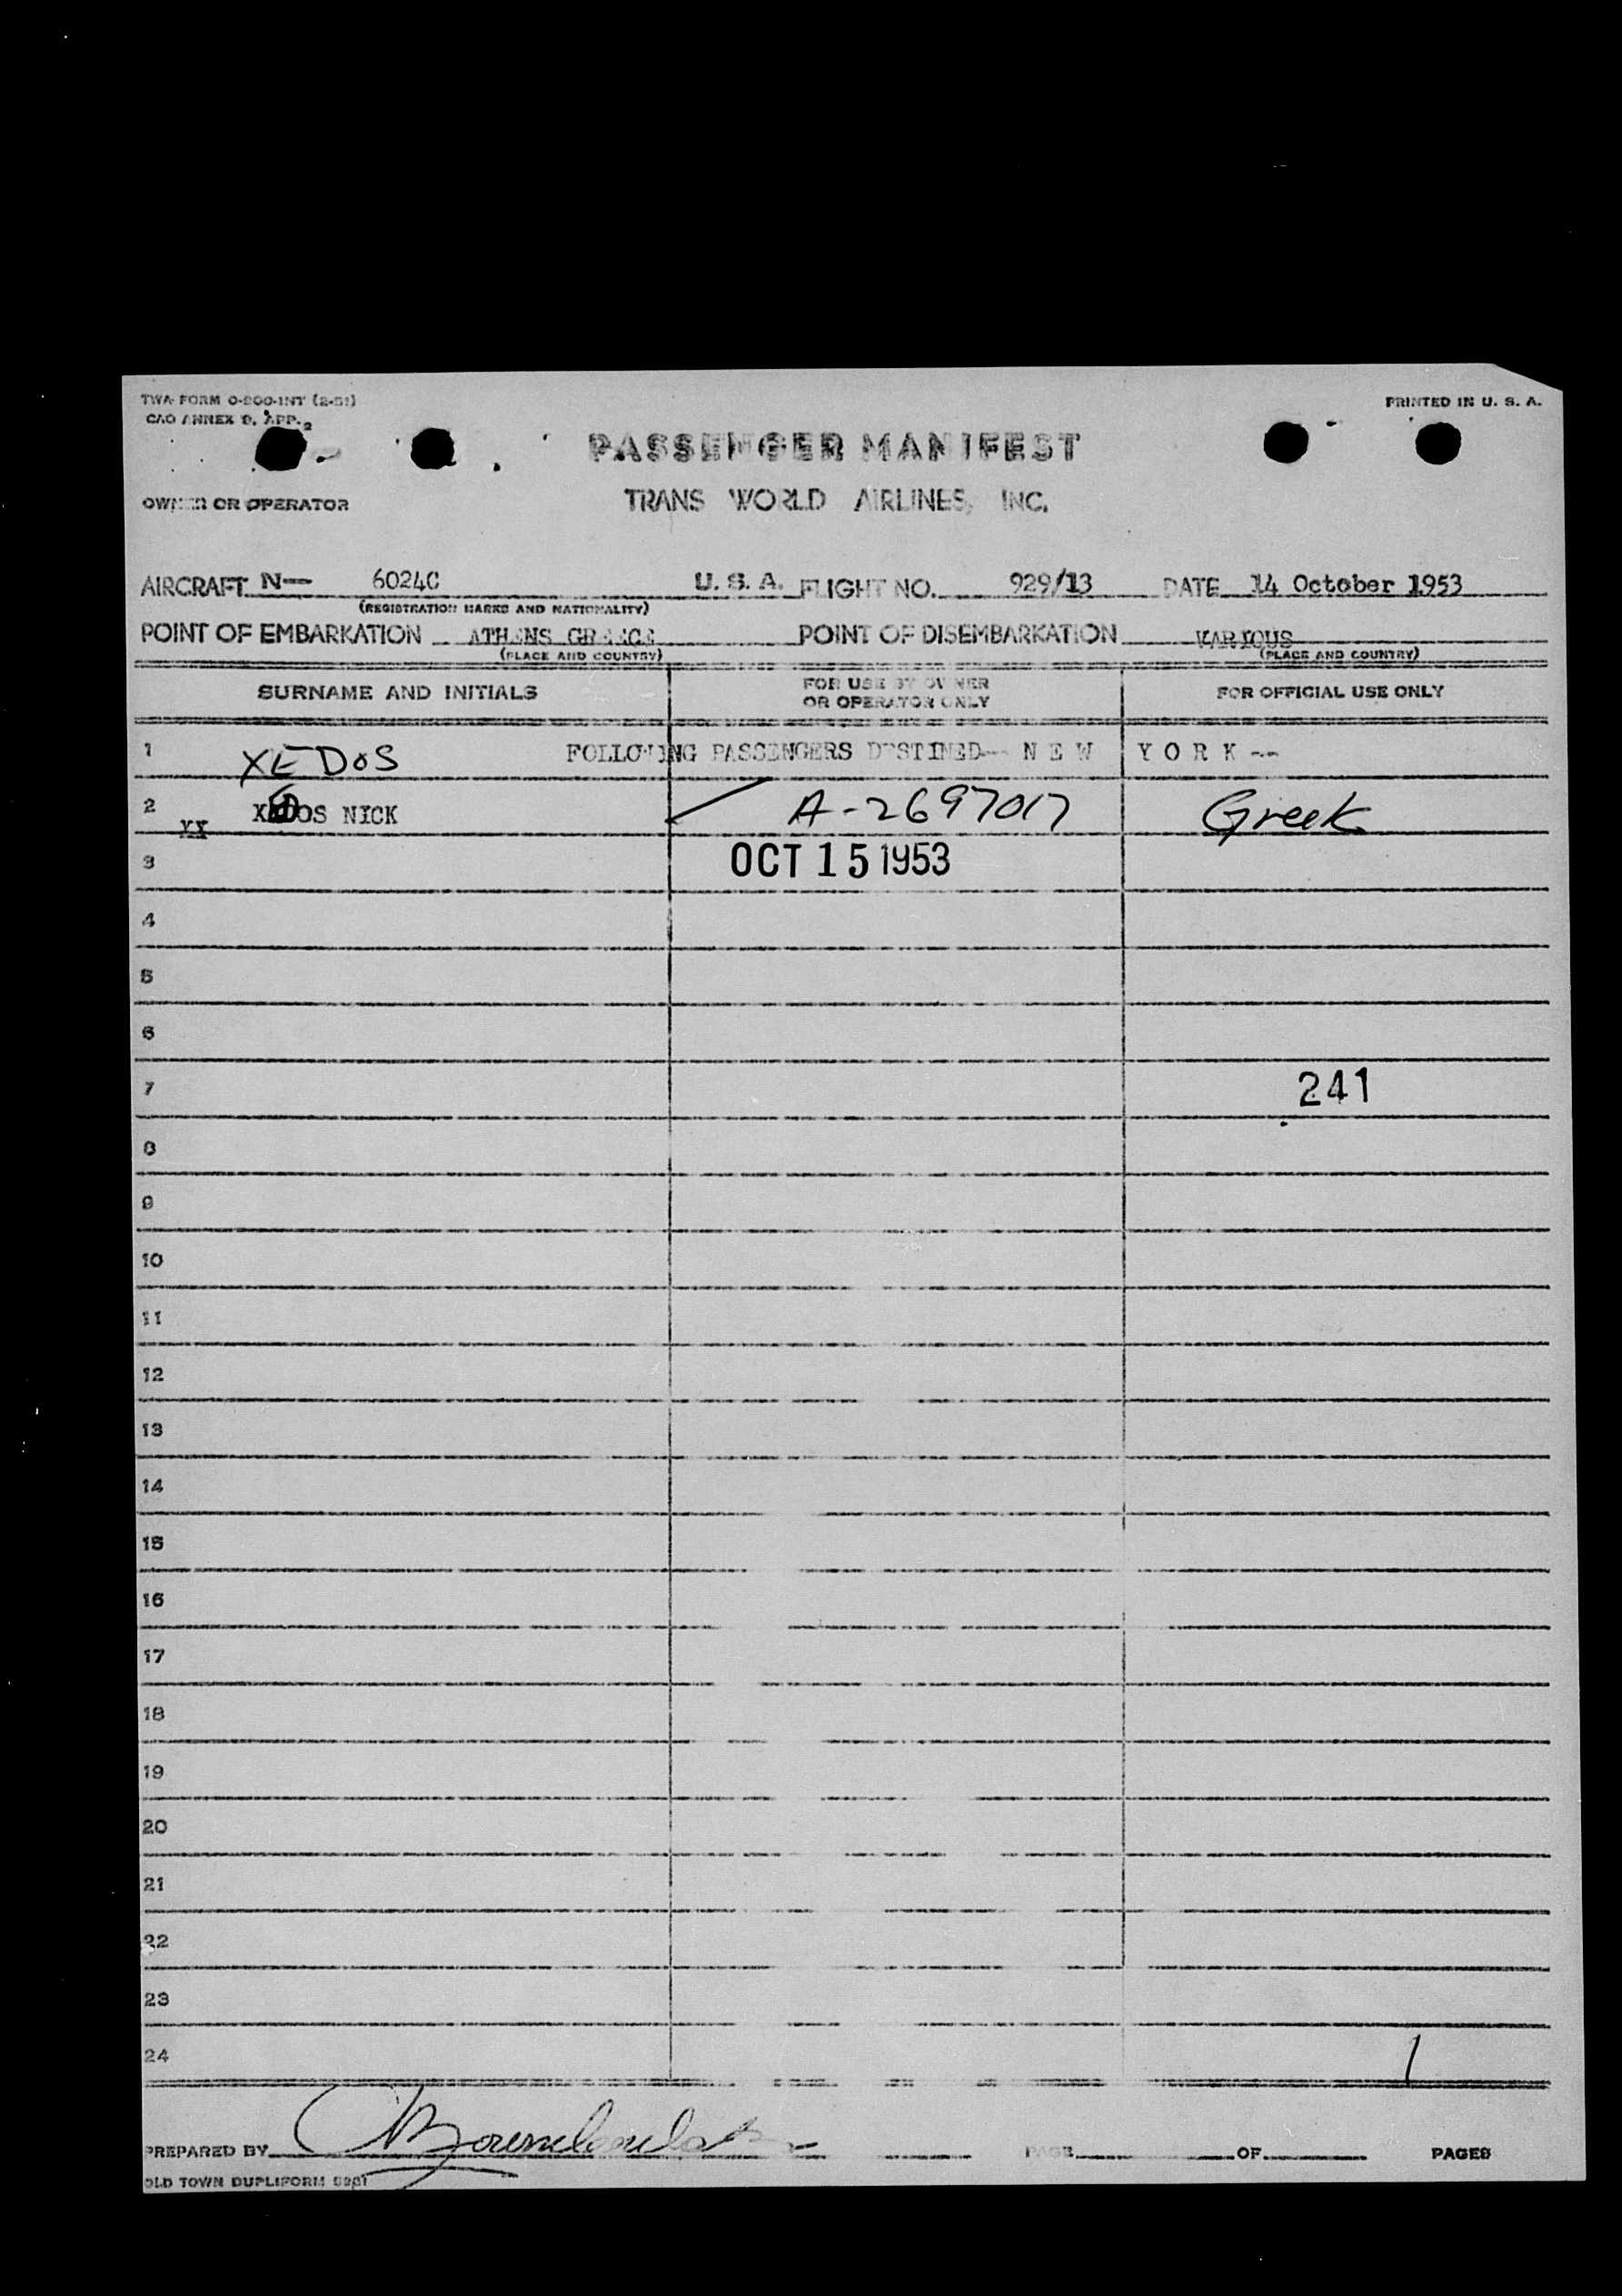 TWA FORM O-800-INT (2-51)
CAO ANNEX 9, APP. 2
PRINTED IN U. S. A.
PASSENGER MANIFEST
OWNER OR OPERATOR TRANS WORLD AIRLINES, INC.
AIRCRAFT N— 6024C U. S. A. FLIGHT NO. 929/13 DATE 14 October 1953
(REGISTRATION MARKS AND NATIONALITY)
POINT OF EMBARKATION ATHENS GREECE POINT OF DISEMBARKATION VARIOUS
(PLACE AND COUNTRY) (PLACE AND COUNTRY)
SURNAME AND INITIALS FOR USE BY OWNER OR OPERATOR ONLY FOR OFFICIAL USE ONLY
1 XEDOS FOLLOWING PASSENGERS DESTINED-- N E W Y O R K --
2 xx XEDOS NICK A-2697017 Greek
3 OCT 15 1953
4
5
6
7 241
8
9
10
11
12
13
14
15
16
17
18
19
20
21
22
23
24 1
PREPARED BY PAGE OF PAGES
OLD TOWN DUPLIFORM